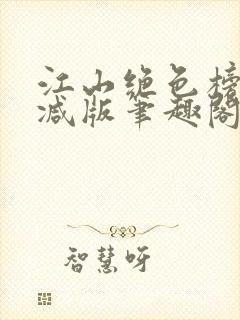 江山绝色榜
减版笔趣阁
智慧呀